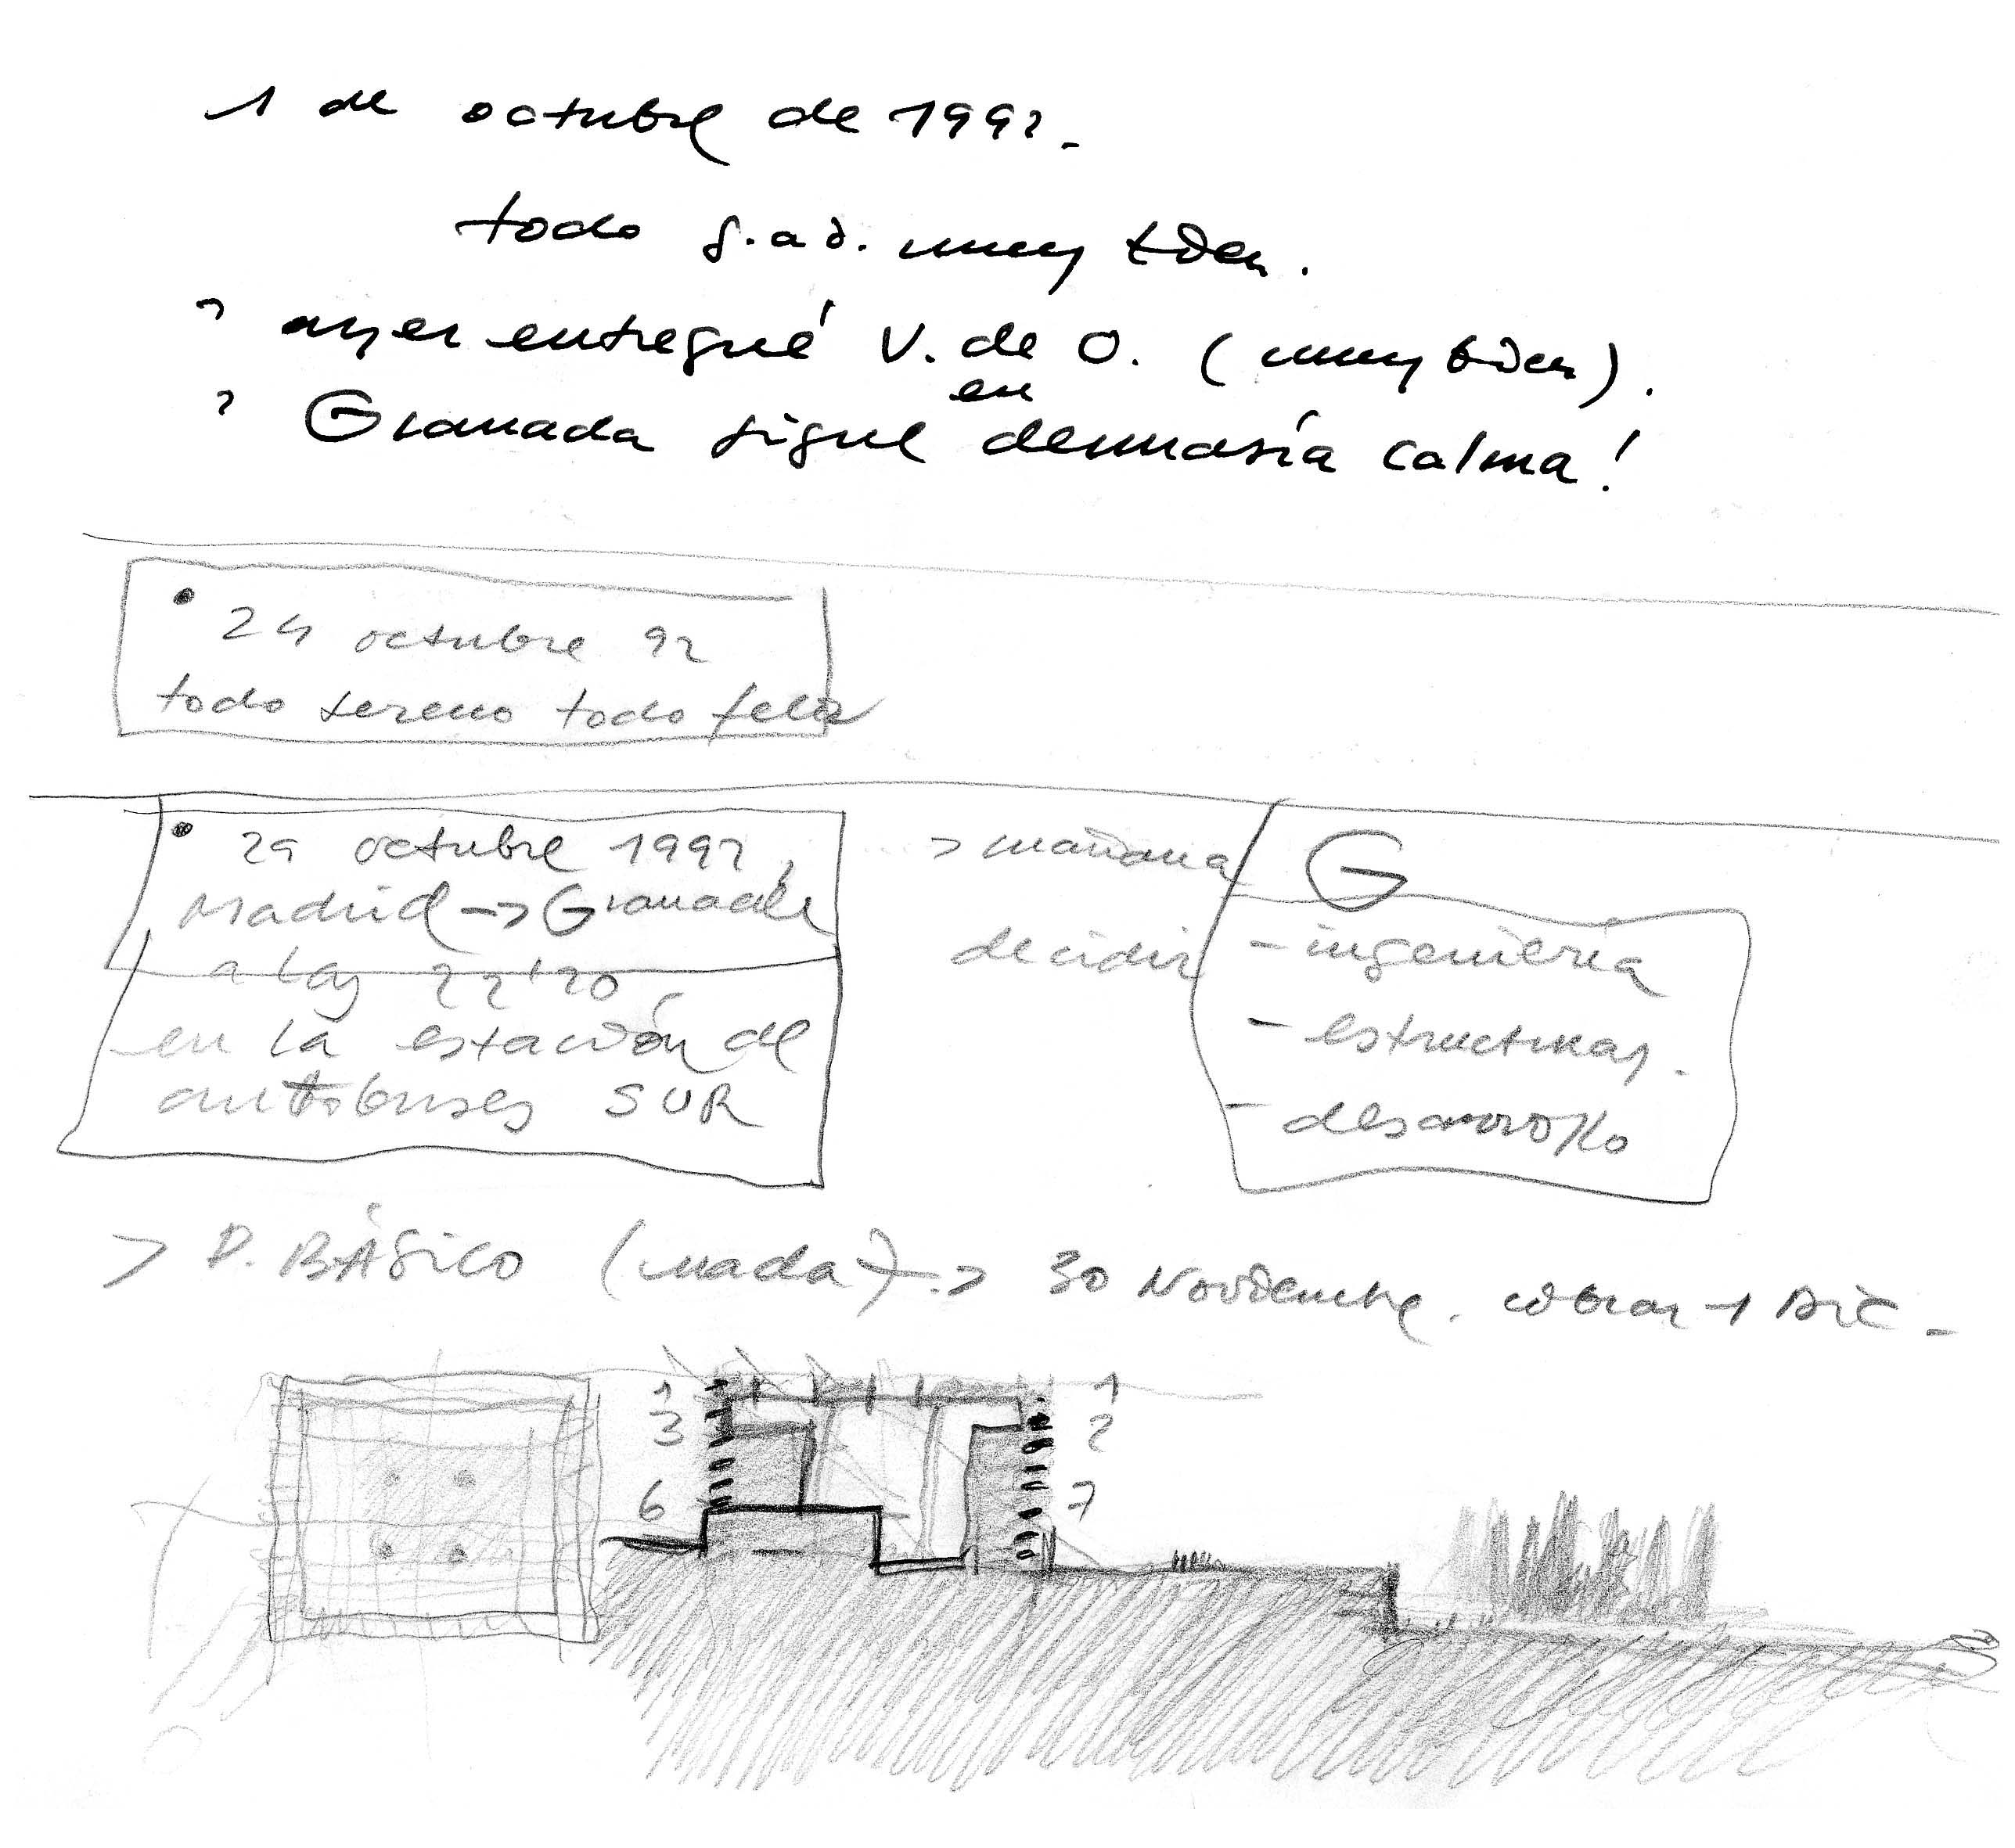 1 de octubre de 1992.
todo g.a d. muy bien.
> ayer entregué V. de O. (muy bien).
> Granada sigue en demasía calma!
• 24 octubre 92
todo sereno todo feliz
• 29 octubre 1992,
Madrid -> Granada
a las 22'20
en la estación de
autobuses SUR
> mañana
decidir
G
- ingeniería
- estructuras.
- desarrollo
> P. BÁSICO (nada) -> 30 Noviembre. cobrar 1 Dic -
1 1
3 2
6 7